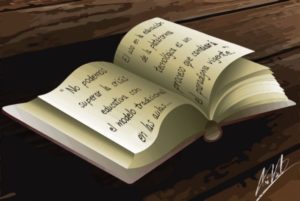 "No podemos
superar la crisis
educativa con
el modelo tradicional
en las aulas...
El uso en la educación
de la plataforma
tecnológica es un
proceso que cambiará
el paradigma vigente."